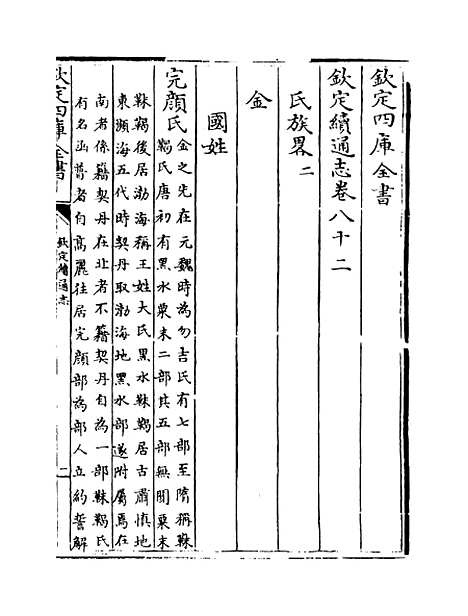 欽定四庫全書
欽定續通志卷八十二
氏族畧二
金
國姓
完顔氏金之先在元魏時為勿吉氏有七部至隋稱靺
鞨氏唐初有黑水粟末二部其五部無聞粟末
靺鞨後居渤海稱王姓大氏黑水靺鞨居古肅慎地
東瀕海五代時契丹取渤海地黑水部遂附屬焉在
南者係籍契丹在北者不籍契丹自為一部靺鞨氏
有名函普者自高麗往居完顔部為部人立約誓解
欽定四庫全書
欽定續通志
二